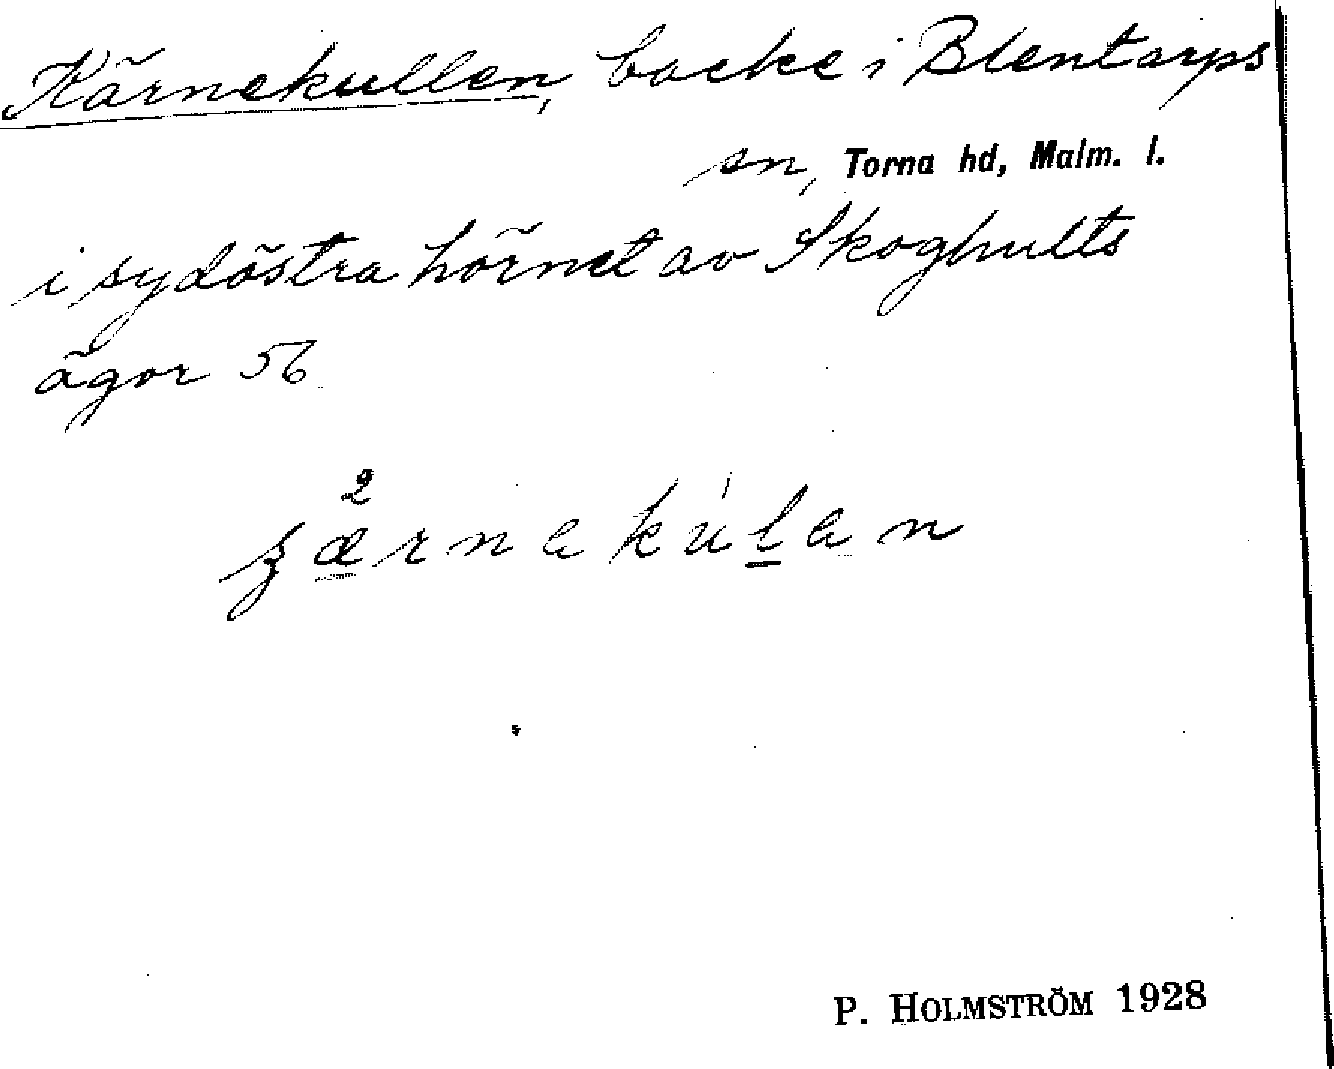 Kärnekullen, backe i Blentarps
sn, Torna hd, Malm. l.
i sydöstra hörnet av Skoghults
ägor 56
P. HOLMSTRÖM 1928